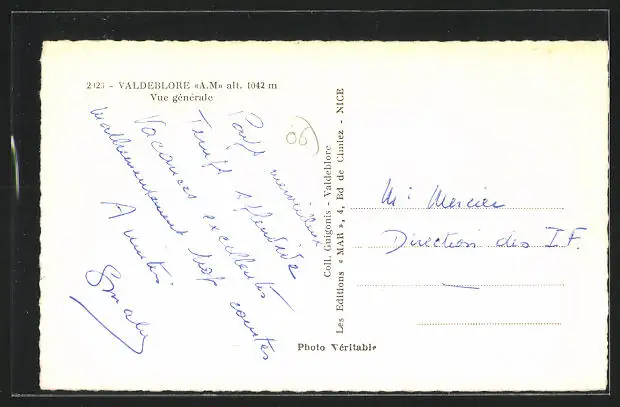 2925 - VALDEBLORE «A.M» alt. 1042 m
Vue générale
06
Pays merveilleux
Temps splendide
Vacances excellentes
Malheureusement trop courtes
Amitiés
Coll. Guigonis - Valdeblore
Les Editions « MAR », 4, Bd de Cimiez - NICE
Mr Mercier
Direction des I.F.
Photo Véritable